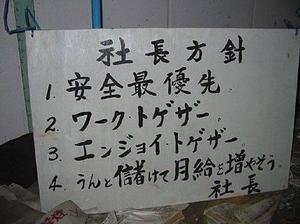 社長方針
1. 安全最優先
2. ワーク・トゲザー
3. エンジョイ・トゲザー
4. うんと儲けて月給を増やそう
社長